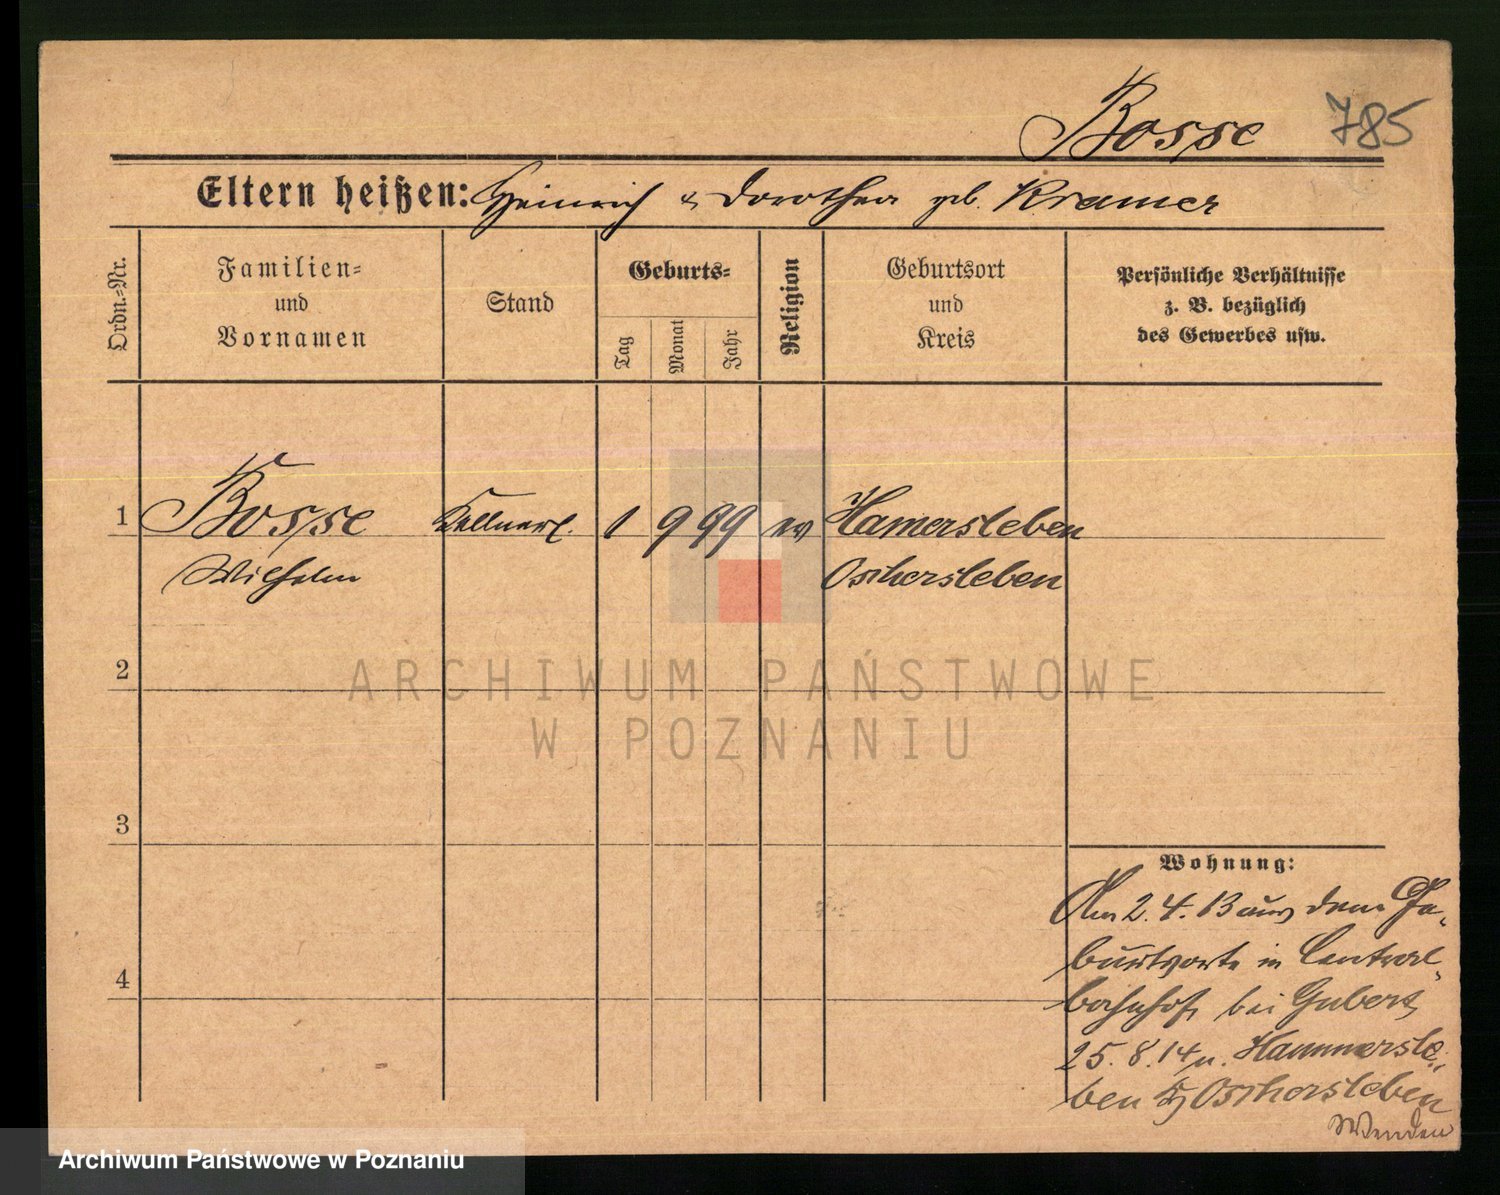 Bosse 785
Eltern heißen: Heinrich & Dorothea geb. Kramer
Ordn.-Nr.
Familien-
und
Vornamen
Stand
Geburts-
Tag
Monat
Jahr
Religion
Geburtsort
und
Kreis
Persönliche Verhältnisse
z. B. bezüglich
des Gewerbes usw.
1 Bosse Kellnerl. 1 9 99 ev Hamersleben
Wilhelm Oschersleben
2
3
4
Wohnung:
Am 2. 4. 13 aus dem Ge-
burtsorte in Central-
bahnhof bei
25. 8. 14 n. Hammersle-
ben Kr Oschersleben
Wenden
ARCHIWUM PAŃSTWOWE
W POZNANIU
Archiwum Państwowe w Poznaniu